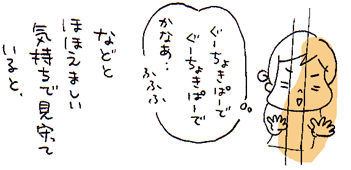 ぐーちょきぱーで
ぐーちょきぱーで
かなあ…
ふふふ
などと
ほほえましい
気持ちで見守って
いると、